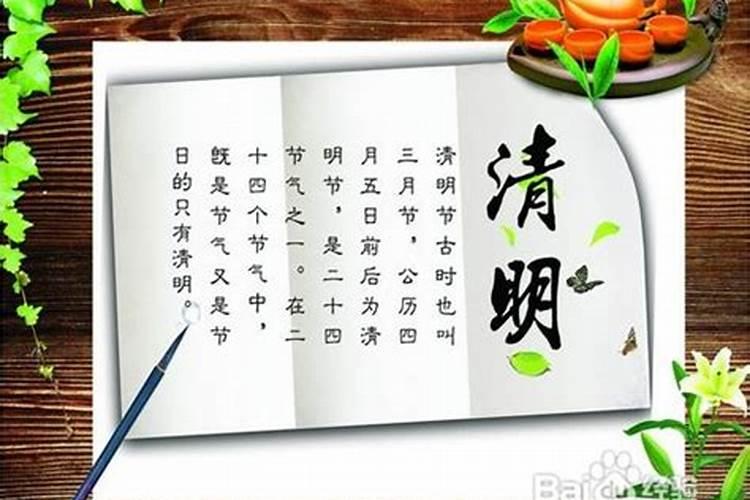 清明
清明节古时也叫
三月节，公历四
月五日前后为清
明节，是二十四
节气之一。在二
十四个节气中，
既是节气又是节
日的只有清明。
Baidu 经验